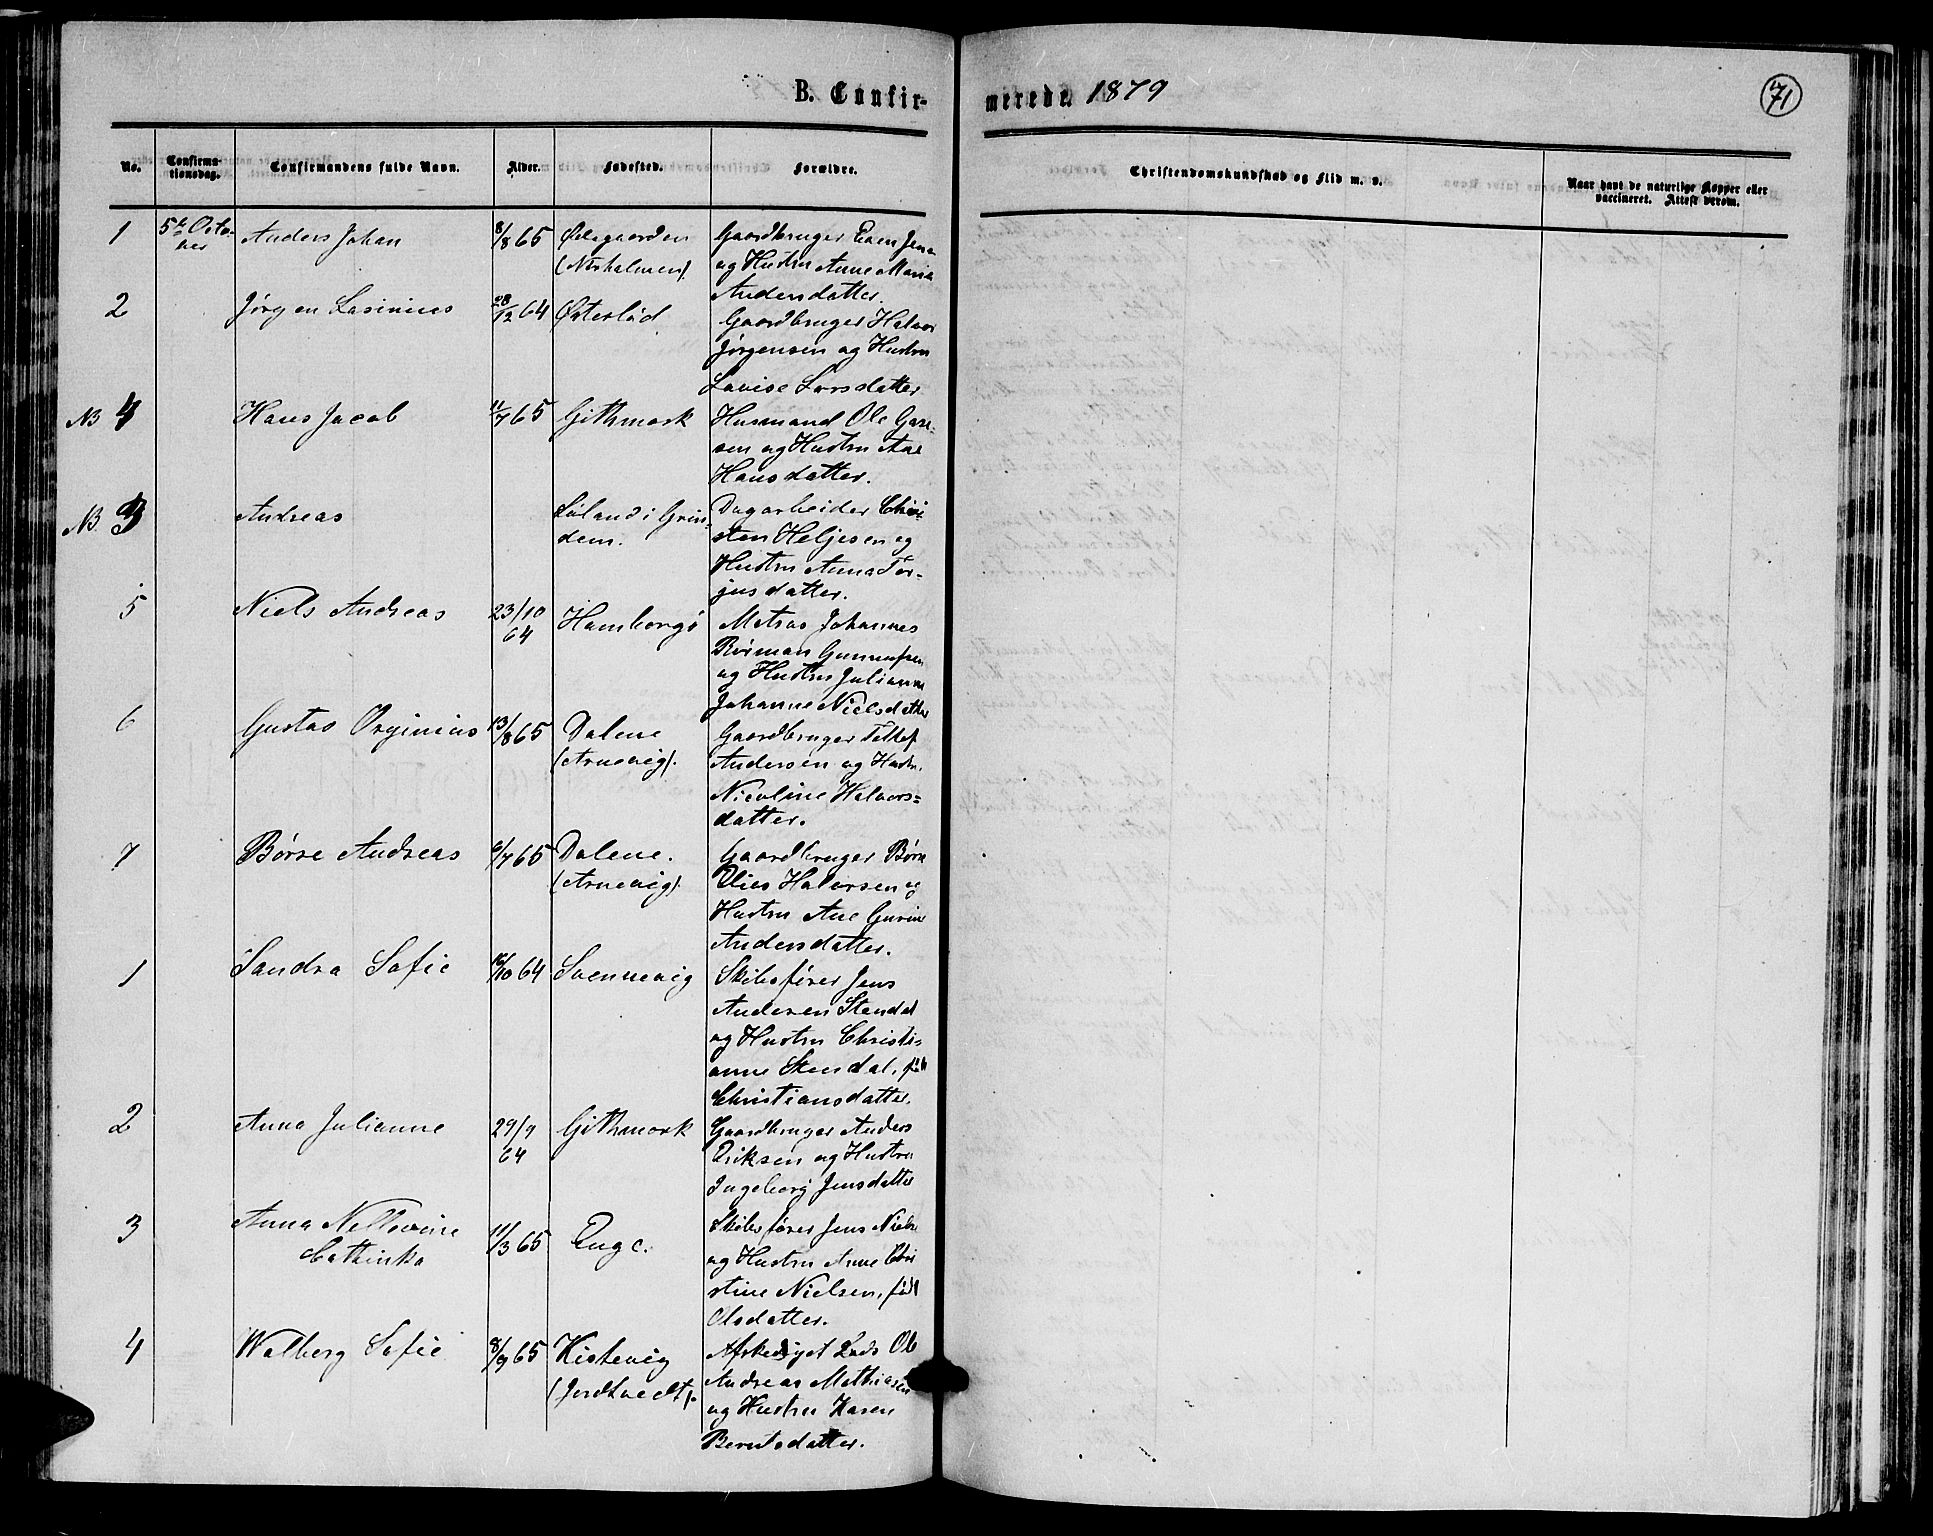 B. Confirmerede 1879
71
No. Confirmationsdag. Confirmandens fulde Navn. Alder. Fødested. Forældre. Christendomskundskab og Flid m. v. Naar havt de naturlige Kopper eller vaccineret. Attest derom.
1 5te October Anders Johan 8/8 65
Gaardbruger Even
og Hustru Anne Maria
Andersdatter.
2 Jørgen Lasinius 28/12 64 Østerlid
Gaardbruger Halvor
Jørgensen og Hustru
Lovise Larsdatter
NB 4 Hans Jacob 11/7 65 Githmark
Husmand Ole
og Hustru Ane
Hansdatter.
NB 3 Andreas
Dagarbeider Chri-
sten Heljesen og
Hustru Anna Tor-
jusdatter.
5 Niels Andreas 23/10 64 Hamborgø
Matros Johannes
og Hustru Julianne
Johanne Nielsdatter
6 Gustav 13/8 65 Dalene
(Arnevig).
Gaardbruger Tellef
Andersen og Hustru
Nicoline Halvors-
datter.
7 Børre Andreas 6/7 65 Dalene.
(Arnevig).
Gaardbruger Børre
Elies Halvorsen og
Hustru Ane Gurine
Andersdatter.
1 Sandra Sofie 16/10 64 Svennevig
Skibsfører Jens
Andersen Stendal
og Hustru Christi-
anne Stendal, født
Christiansdatter.
2 Anna Julianne 29/9 64 Githmark
Gaardbruger Anders
Eriksen og Hustru
Ingeborg Jensdatter
3 Anna
Cathinka 11/3 65 Enge.
Skibsfører Jens Nielsen
og Hustru Anne Chri
stine Nielsen, født
Olsdatter.
4 Walberg Sofie 8/9 65 Kistevig
(Jordtvedt).
Afskediget Lods Ole
Andreas Mathiasen
og Hustru Karen
Berntsdatter.